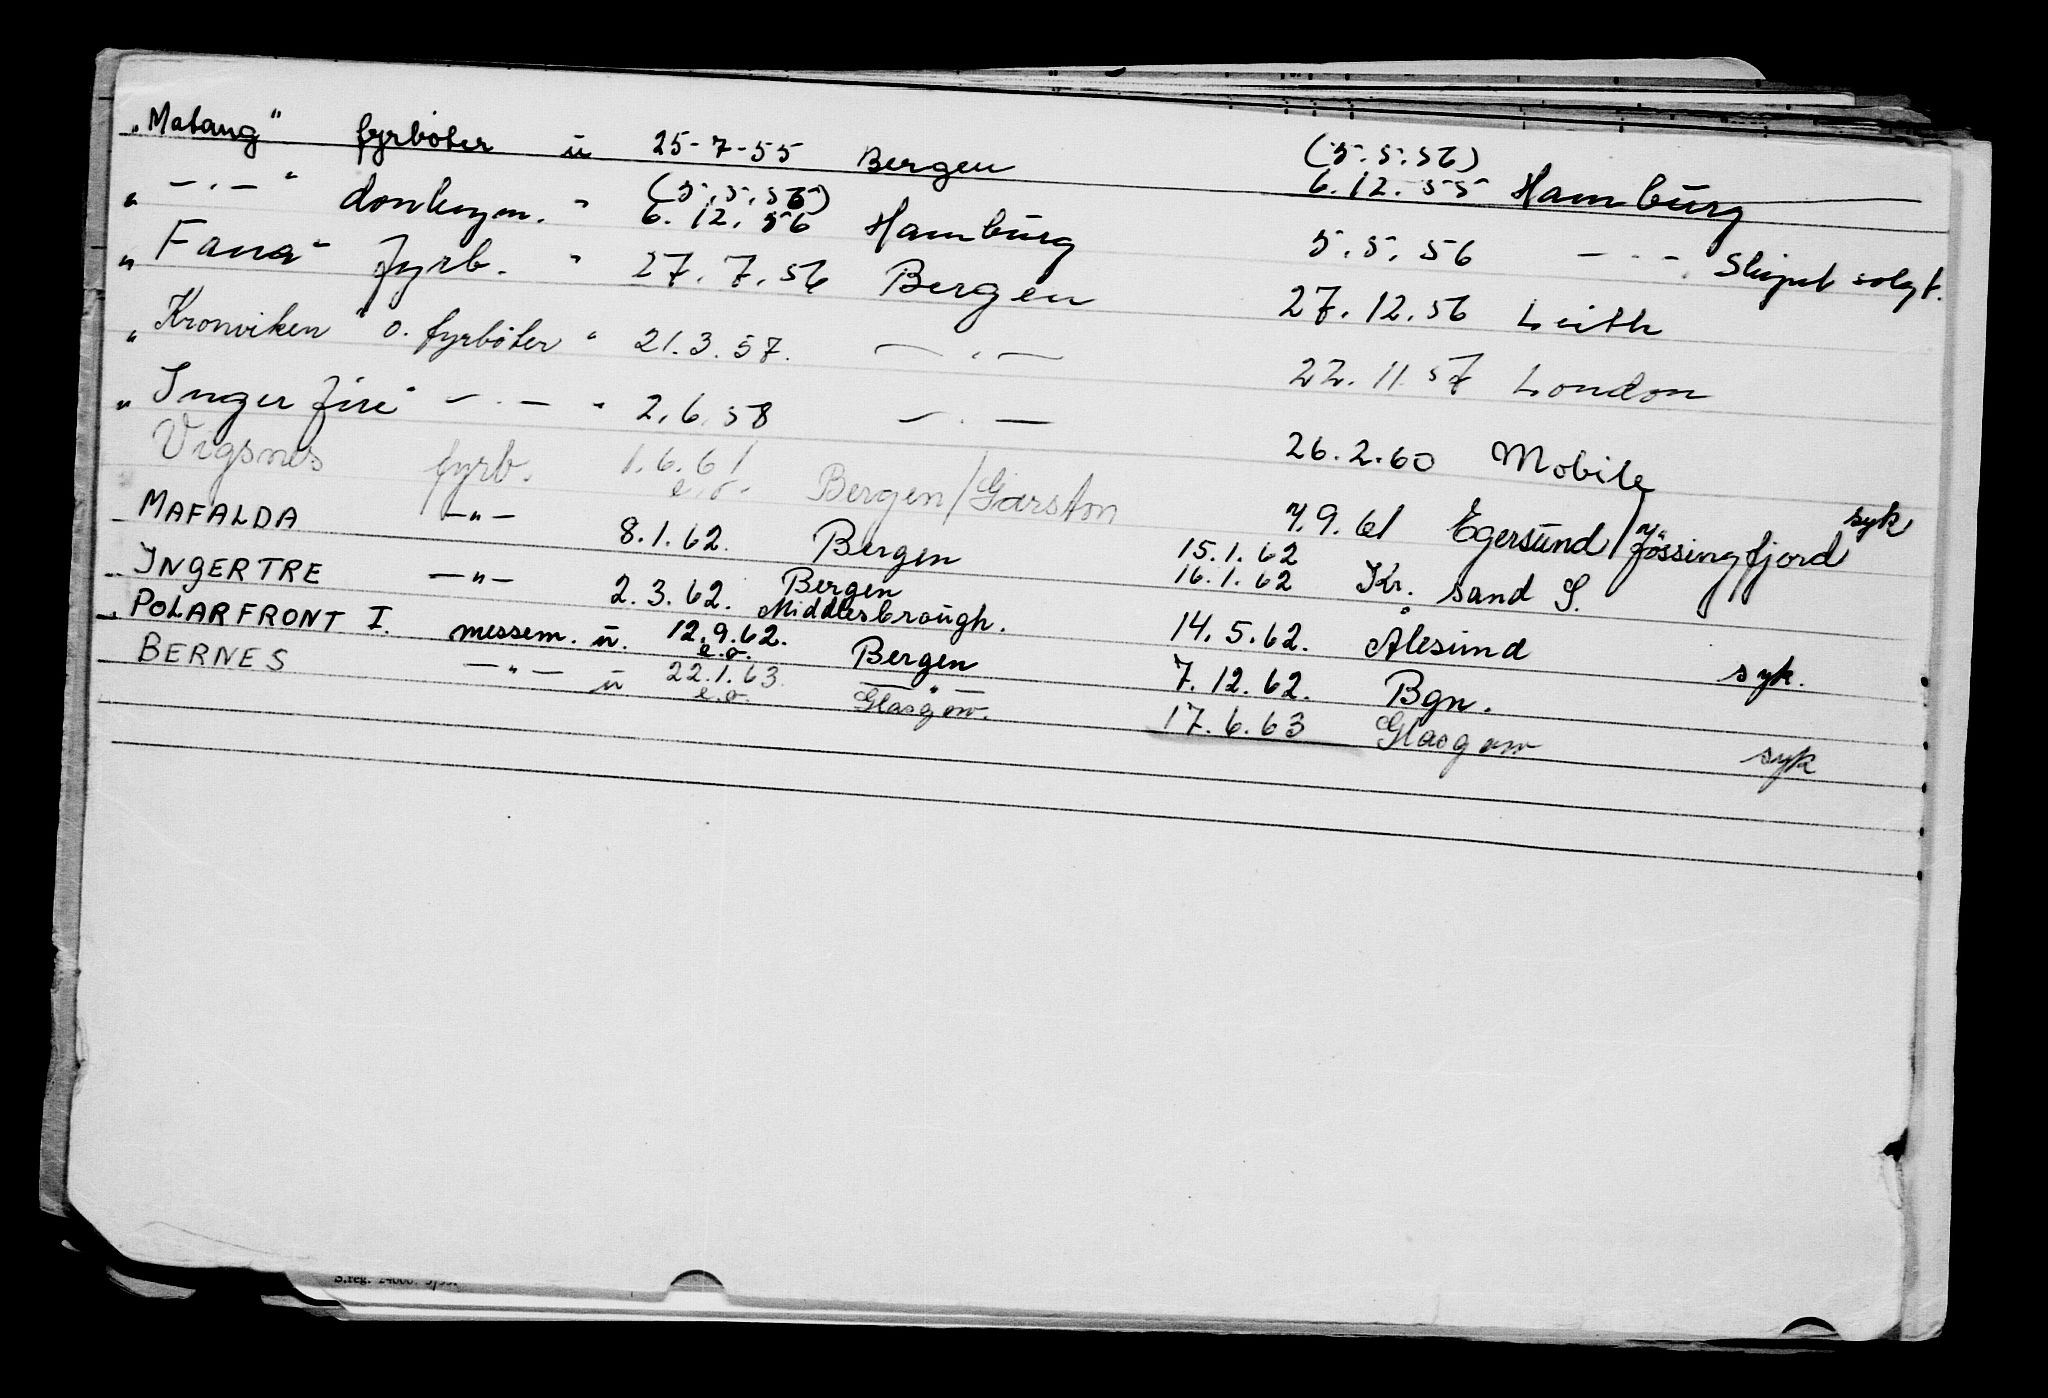 „Matang" fyrbøter u 25-7-55 Bergen (5.5.56) 6.12.55 Hamburg
„ — . — " donkeym. " (5.5.56) 6.12.56 Hamburg 5.5.56 — . — Skipet solgt.
„ Fana" fyrb. " 27.7.56 Bergen 27.12.56 Leith
„ Kronviken" o. fyrbøter " 21.3.57. — " — 22.11.57 London
„ Inger fire" — . — " 2.6.58 — . — 26.2.60 Mobile
Vigsnes fyrb. 1.6.61 e.o. Bergen/Garston 7.9.61 Egersund/Jøssingfjord syk
MAFALDA —"— 8.1.62. Bergen 15.1.62 16.1.62 Kr. sand S.
INGERTRE —"— 2.3.62. Bergen Middlesbrough. 14.5.62. Ålesund syk.
POLARFRONT I. messem. u. 12.9.62. e.o. Bergen 7.12.62. Bgn.
BERNES —"— u 22.1.63. e.o. —"— Glasgow. 17.6.63 Glasgow syk
S.reg. 24000. 3/55.